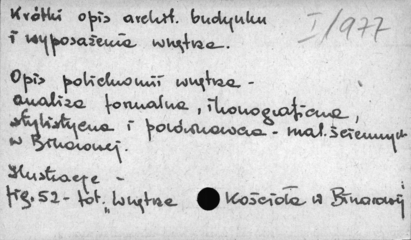 Krótki opis archit. budynku I/977
i wyposażenia wnętrza.
Opis polichromii wnętrza -
analiza formalna, ikonograficzna,
stylistyczna i porównawcza - mal. ściennych
w Binarowej.
Ilustracje -
fig. 52 - fot. "Wnętrze Kościoła w Binarowej